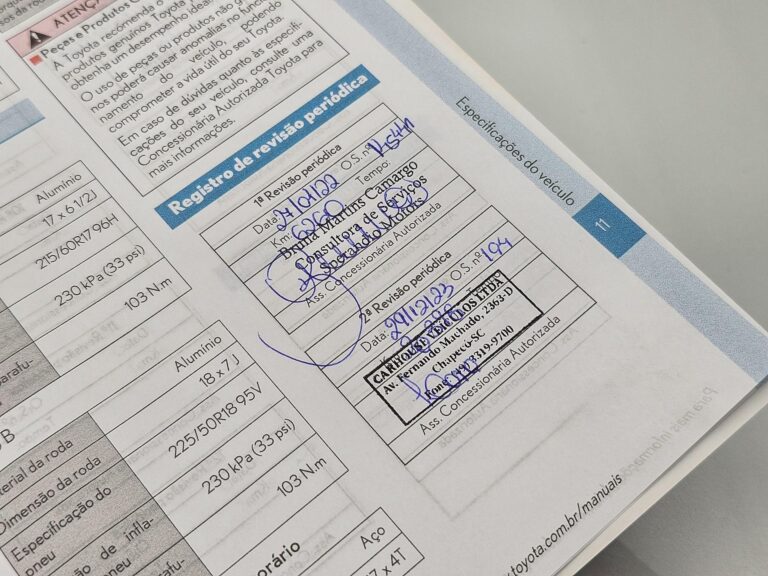 ATENÇ
Peças e Produtos
A Toyota recomenda o
produtos genuínos Toyota
obtenha um desempenho ideal
O uso de peças ou produtos não
nos poderá causar anomalias no funcio
namento do veículo, podendo
comprometer a vida útil do seu Toyota.
Em caso de dúvidas quanto às especifi-
cações do seu veículo, consulte uma
Concessionária Autorizada Toyota para
mais informações.
Registro de revisão periódica
1ª Revisão periódica
Data: O.S. nº
Km: Tempo:
Bruna Martins Camargo
Consultora de Serviços
Motors
Ass. Concessionária Autorizada
2ª Revisão periódica
Data: 29/12/23 O.S. nº 194
CARHOUSE VEICULOS LTDA
Av. Fernando Machado, 2363-D
Chapecó-SC
319-9700
Ass. Concessionária Autorizada
Especificações do veículo
11
Alumínio
17 x 6 1/2J
215/60R17 96H
230 kPa (33 psi)
103 N.m
Alumínio
18 x 7J
225/50R18 95V
230 kPa (33 psi)
103 N.m
B
erial da roda
Dimensão da roda
Especificação do
pneu
ão de infla-
pneu
orário
Aço
7 x 4T
.toyota.com.br/manuais